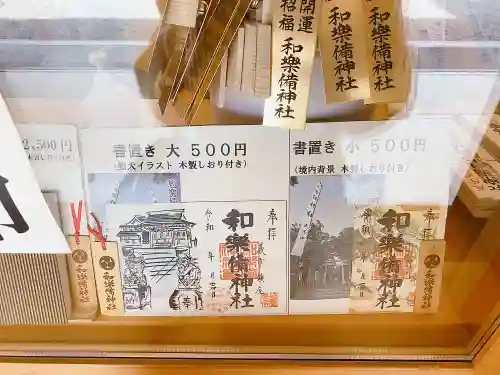 開運
招福
和樂備神社
和樂備神社
和樂備神社
2,500円
書置き 大 500円
(狛犬イラスト 木製しおり付き)
書置き 小 500円
(境内背景 木製しおり付き)
奉拝
和樂備神社
令和 年 月 吉日
和樂備神社
奉拝
和樂備神社
和樂備神社